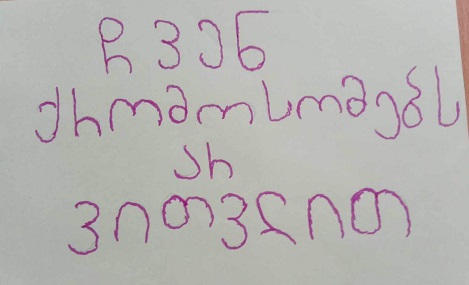 ჩვენ
ქრომოსომებს
არ
ვითვლით